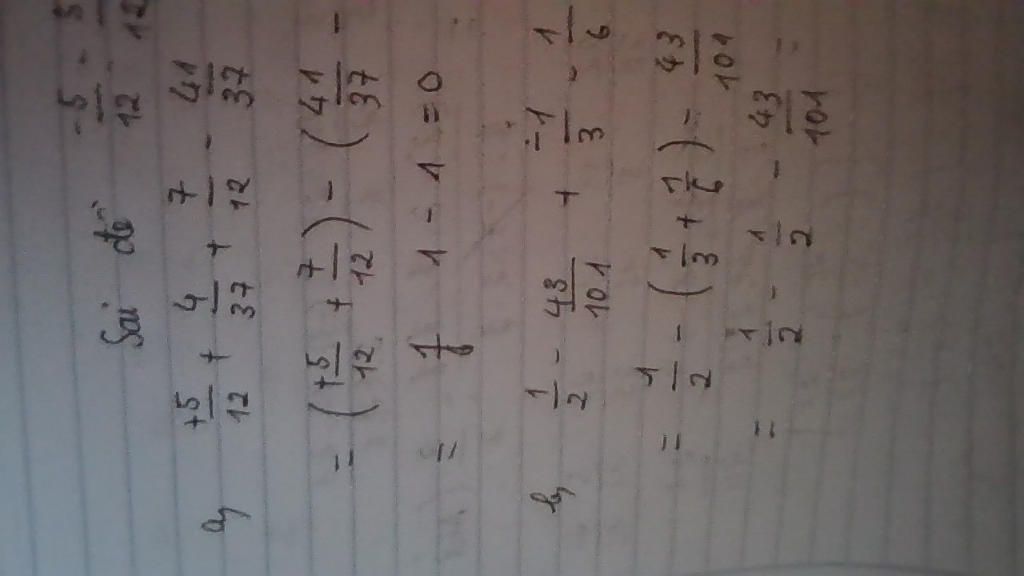 -5/12 - 5/12
Sai đề
a, +5/12 + 4/37 + 7/12 - 41/37
= (+5/12 + 7/12) - (41/37 -
= 1 - 1 = 0
b, 1/2 - 43/101 + -1/3 - 1/6
= 1/2 - (1/3 + 1/6) - 43/101
= 1/2 - 1/2 - 43/101 =